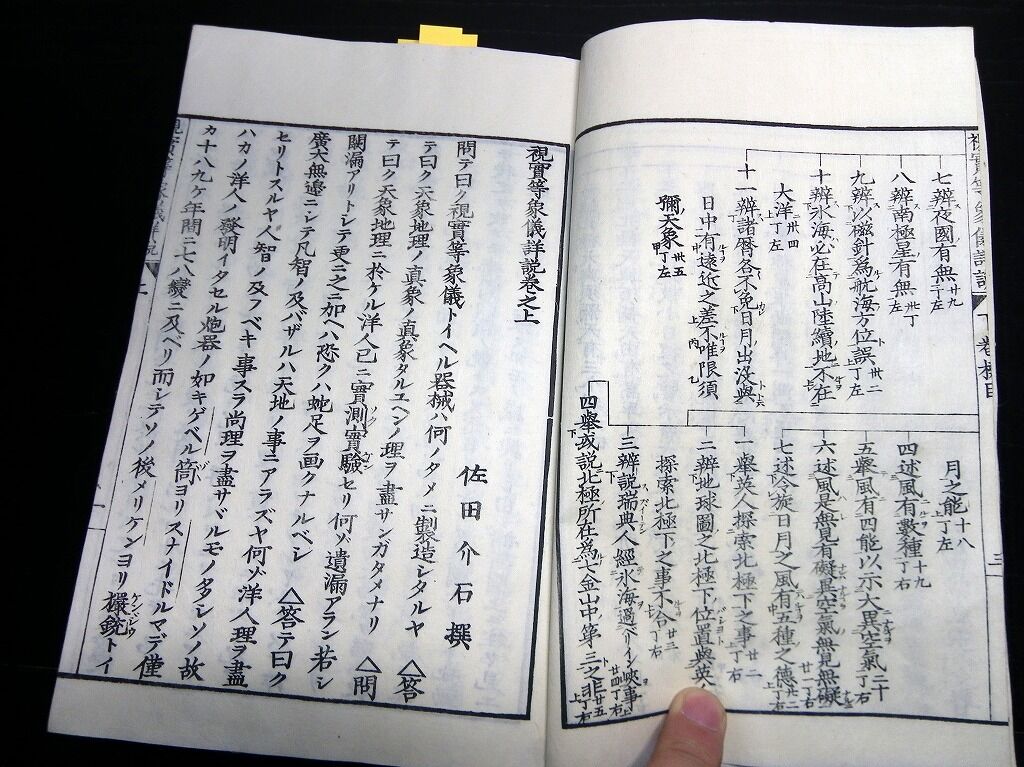 視實等象儀詳説
下卷摽目
三
月之能十八丁左
四述風有數種十九丁右
五擧風有四能以示大異空氣二十丁右
六述風是無見有礙異空氣無見無礙廿一丁右
七述吟旋日月之風有五種之德廿二丁右
七辨夜國有無廿九丁左
八辨南極星有無卅丁左
九辨以磁針為航海方位誤卅二丁左
十辨氷海必在高山陸續地不在
大洋卅四丁左
十一辨諸曆各不免日月出没與
日中有遠近之差不唯限須
彌天象卅五丁左
一擧英人探索北極下之事廿二丁右
二辨地球圖之北極下位置與英人
探索北極下之事不合廿三丁右
三辨説瑞典人經氷海過ベーリイン峽事廿四丁右
四擧或説北極所在為七金山中第三之非廿五丁右
視實等象儀詳説卷之上
佐田介石撰
問テ曰ク視實等象儀トイヘル器械ハ何ノタメニ製造シタルヤ △答
テ曰ク天象地理ノ真象ノ真象タルユヘンノ理ヲ盡サンガタメナリ △問
テ曰ク天象地理ニ於ケル洋人已ニ實測實驗セリ何ゾ遺漏アラン若シ
闕漏アリトシテ更ニ之ニ加ヘハ恐クハ蛇足ヲ画クナルベシ △答テ曰ク
廣大無邊ニシテ凡智ノ及バザルハ天地ノ事ニアラズヤ何ゾ洋人理ヲ盡
セリトスルヤ人智ノ及フベキ事スラ尚理ヲ盡サヾルモノ多シソノ故
ハカノ洋人ノ發明イタセル炮器ノ如キゲベル筒ヨリスナイドルマデ僅
カ十八九ケ年間ニ七八變ニ及ベリ而シテソノ後メリケンヨリ櫃銃トイ